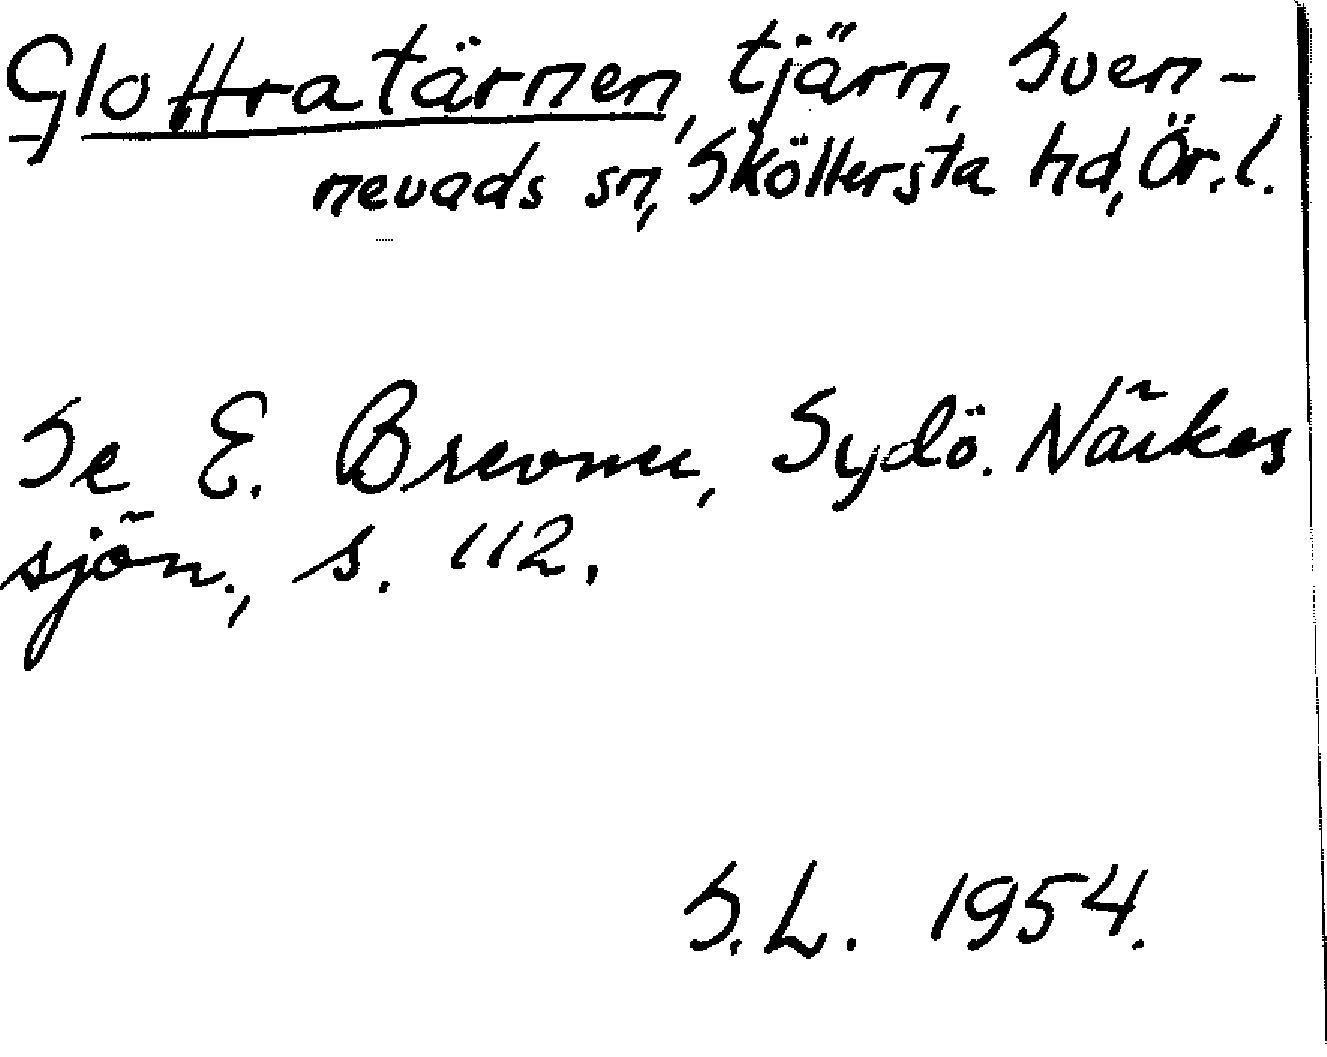 Glottratärnen, tjärn, Sven-
nevads sn, Sköllersta hd, Ör. l.
Se E. Brevner, Sydö. Närkes
sjön., s. 112.
S. L. 1954.